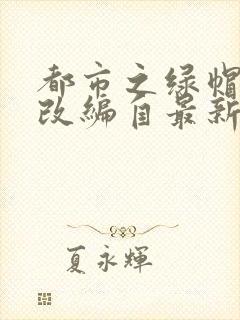 都市之绿帽
改编自最新
夏永辉